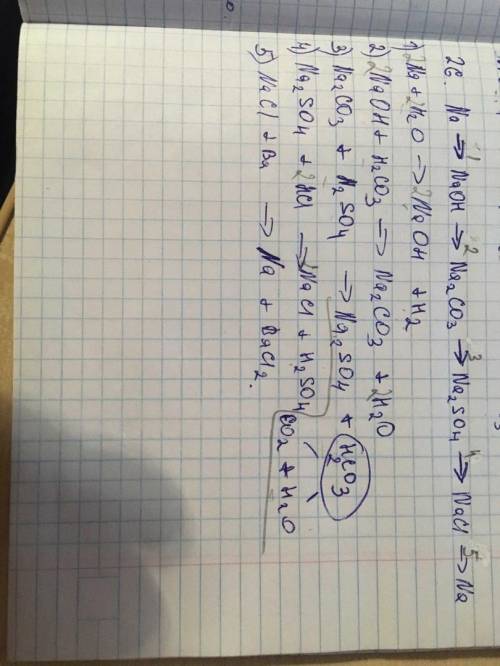 26. Na →1 NaOH →2 Na2CO3 →3 Na2SO4 →4 NaCl →5 Na
1) 2Na + 2H2O → 2NaOH + H2
2) 2NaOH + H2CO3 → Na2CO3 + 2H2O
3) Na2CO3 + H2SO4 → Na2SO4 + H2CO3
CO2 + H2O
4) Na2SO4 + 2HCl → 2NaCl + H2SO4
5) NaCl + Ba → Na + BaCl2.